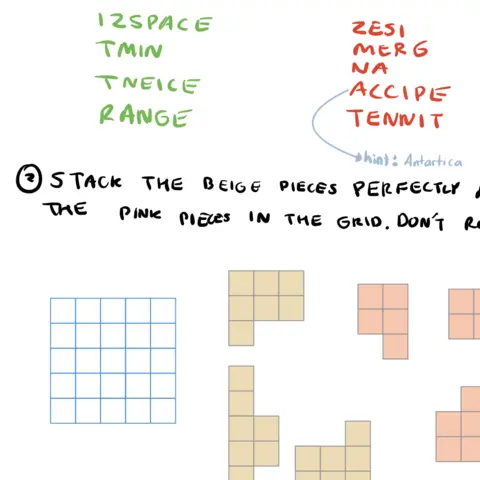 IZSPACE
TMIN
TNEICE
RANGE
ZESI
MERG
NA
ACCIPE
TENNIT
hint: Antartica
② STACK THE BEIGE PIECES PERFECTLY
THE PINK PIECES IN THE GRID. DON'T